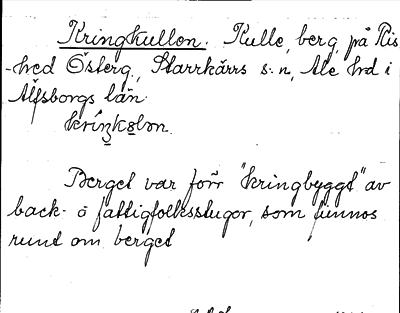 Kringkullen. Kulle, berg, på Ris
-hed Österg., Starrkärrs s:n, Ale hd i
Älfsborgs län.
Berget var förr "kringbyggt" av
back- o fattigfolksstugor, som funnos
runt om berget